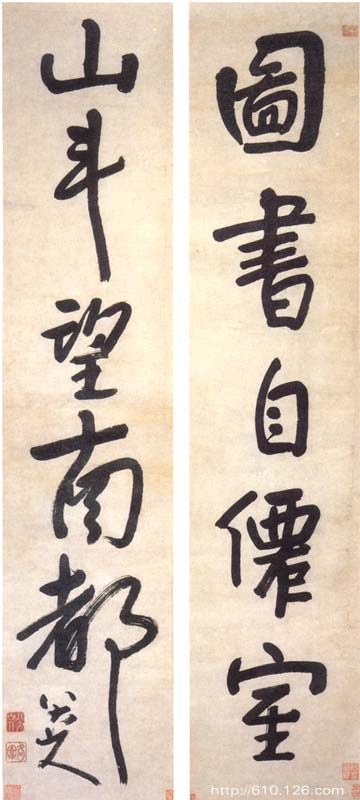 圖書自僊室
山斗望南都
八大山人
http://610.126.com